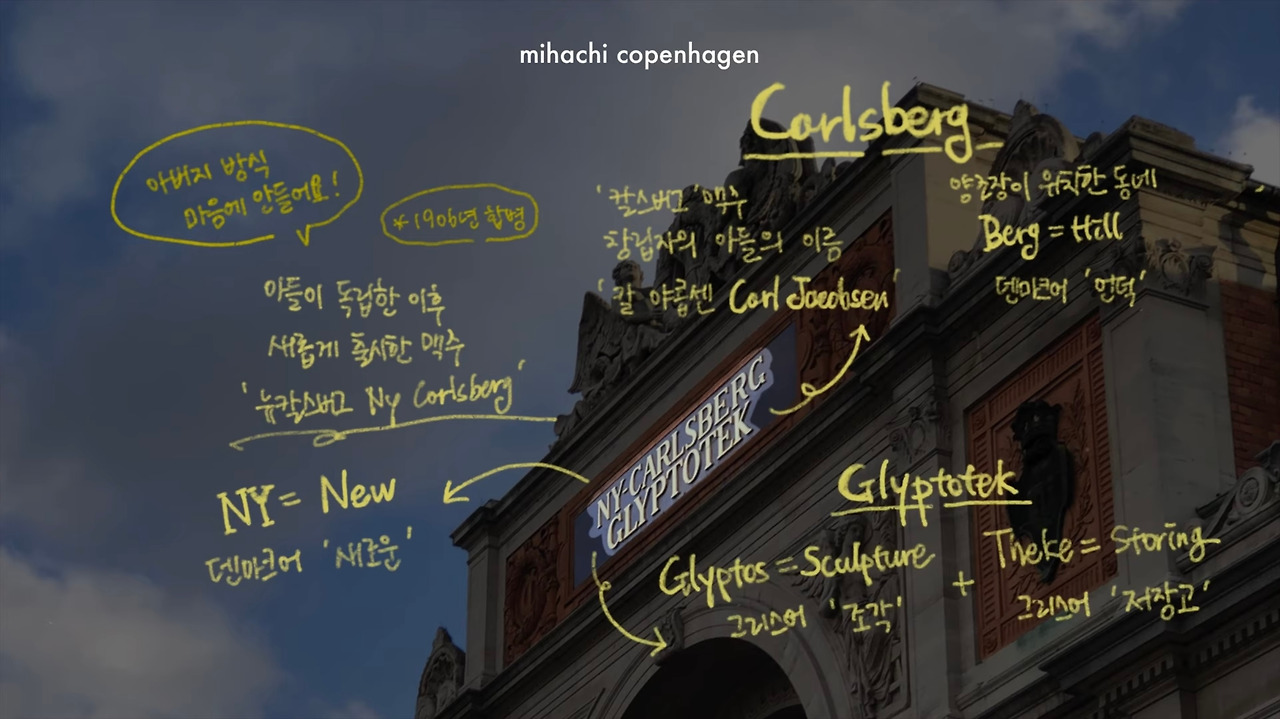 mihachi copenhagen
Carlsberg
'칼스버그 맥주
창립자의 아들의 이름
'칼 야콥센 Carl Jacobsen'
양조장이 위치한 동네
Berg = Hill
덴마크어 '언덕'
아버지 방식
마음에 안들어요!
*1906년 합병
아들이 독립한 이후
새롭게 출시한 맥주
'뉴칼스버그 Ny Carlsberg'
NY = New
덴마크어 '새로운'
NY-CARLSBERG
GLYPTOTEK
Glyptotek
Glyptos = Sculpture
그리스어 '조각'
+
Theke = Storing
그리스어 '저장고'